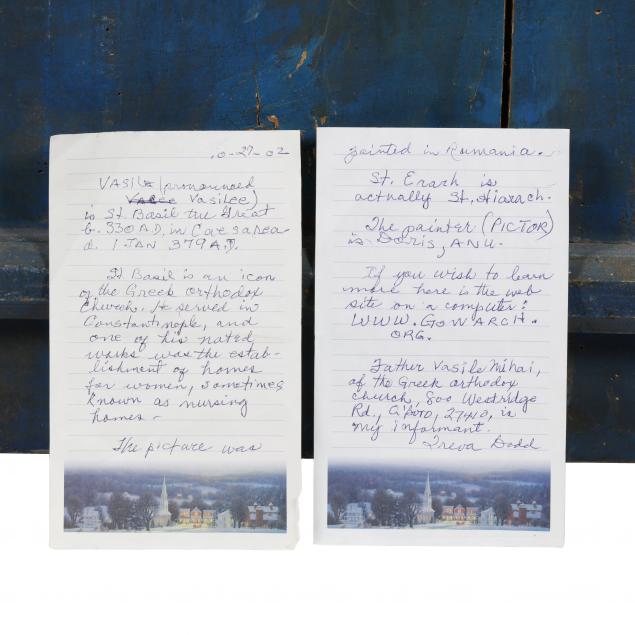 10-27-02
VASILE (pronounced
Vasilee)
is St. Basil the Great
b. 330 A.D. in Caesarea
d. 1 JAN 379 A.D.
St Basil is an icon
of the Greek orthodox
Church. He served in
Constantinople, and
one of his noted
works was the estab-
lishment of homes
for women, sometimes
known as nursing
homes -
The picture was
painted in Rumania.
St. Erarh is
actually St. Hiarach.
The painter (PICTOR)
is Doris, ANU.
If you wish to learn
more here is the web
site on a computer:
WWW.GOWARCH.
ORG.
Father Vasile Mihai,
of the Greek orthodox
church, 800 Westridge
Rd., G'boro, 27410, is
my informant.
Treva Dodd